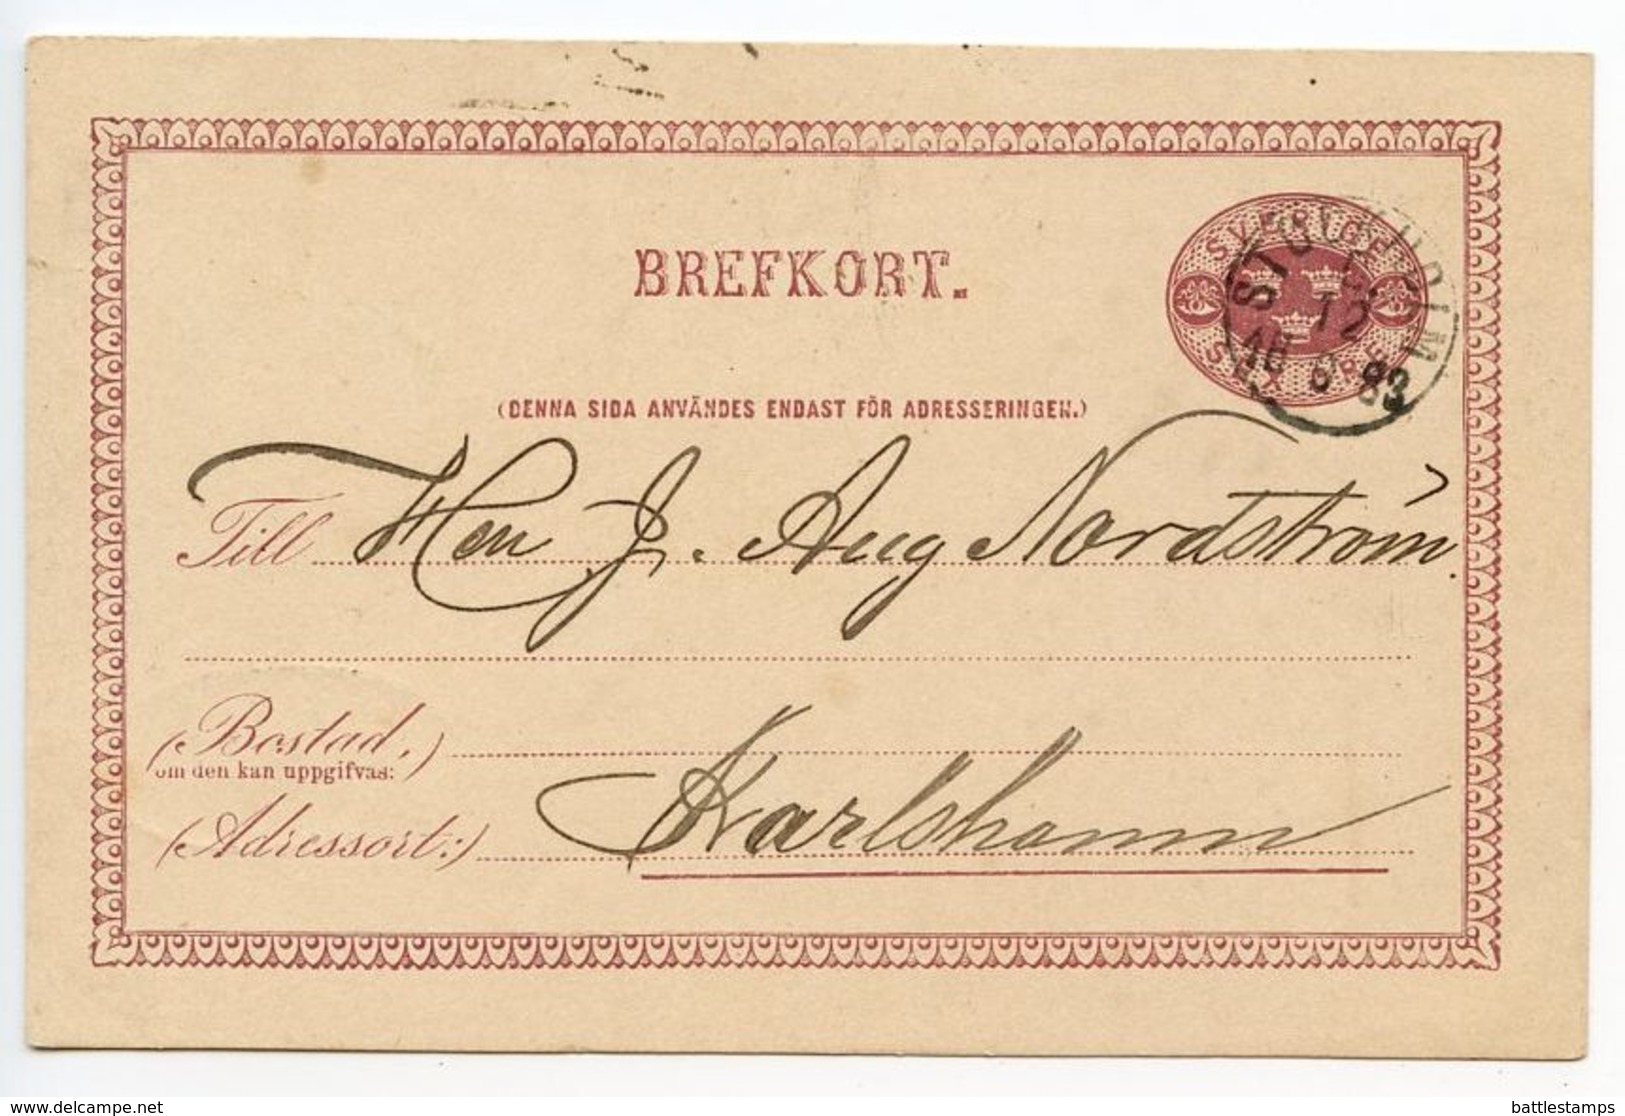 BREFKORT.
SVERIGE
SEX ÖRE
STOCKHOLM
12
83
(DENNA SIDA ANVÄNDES ENDAST FÖR ADRESSERINGEN.)
Till Herr J. Aug Nordström.
(Bostad,)
om den kan uppgifvas:
(Adressort:) Karlshamn
www.delcampe.net
battlestamps